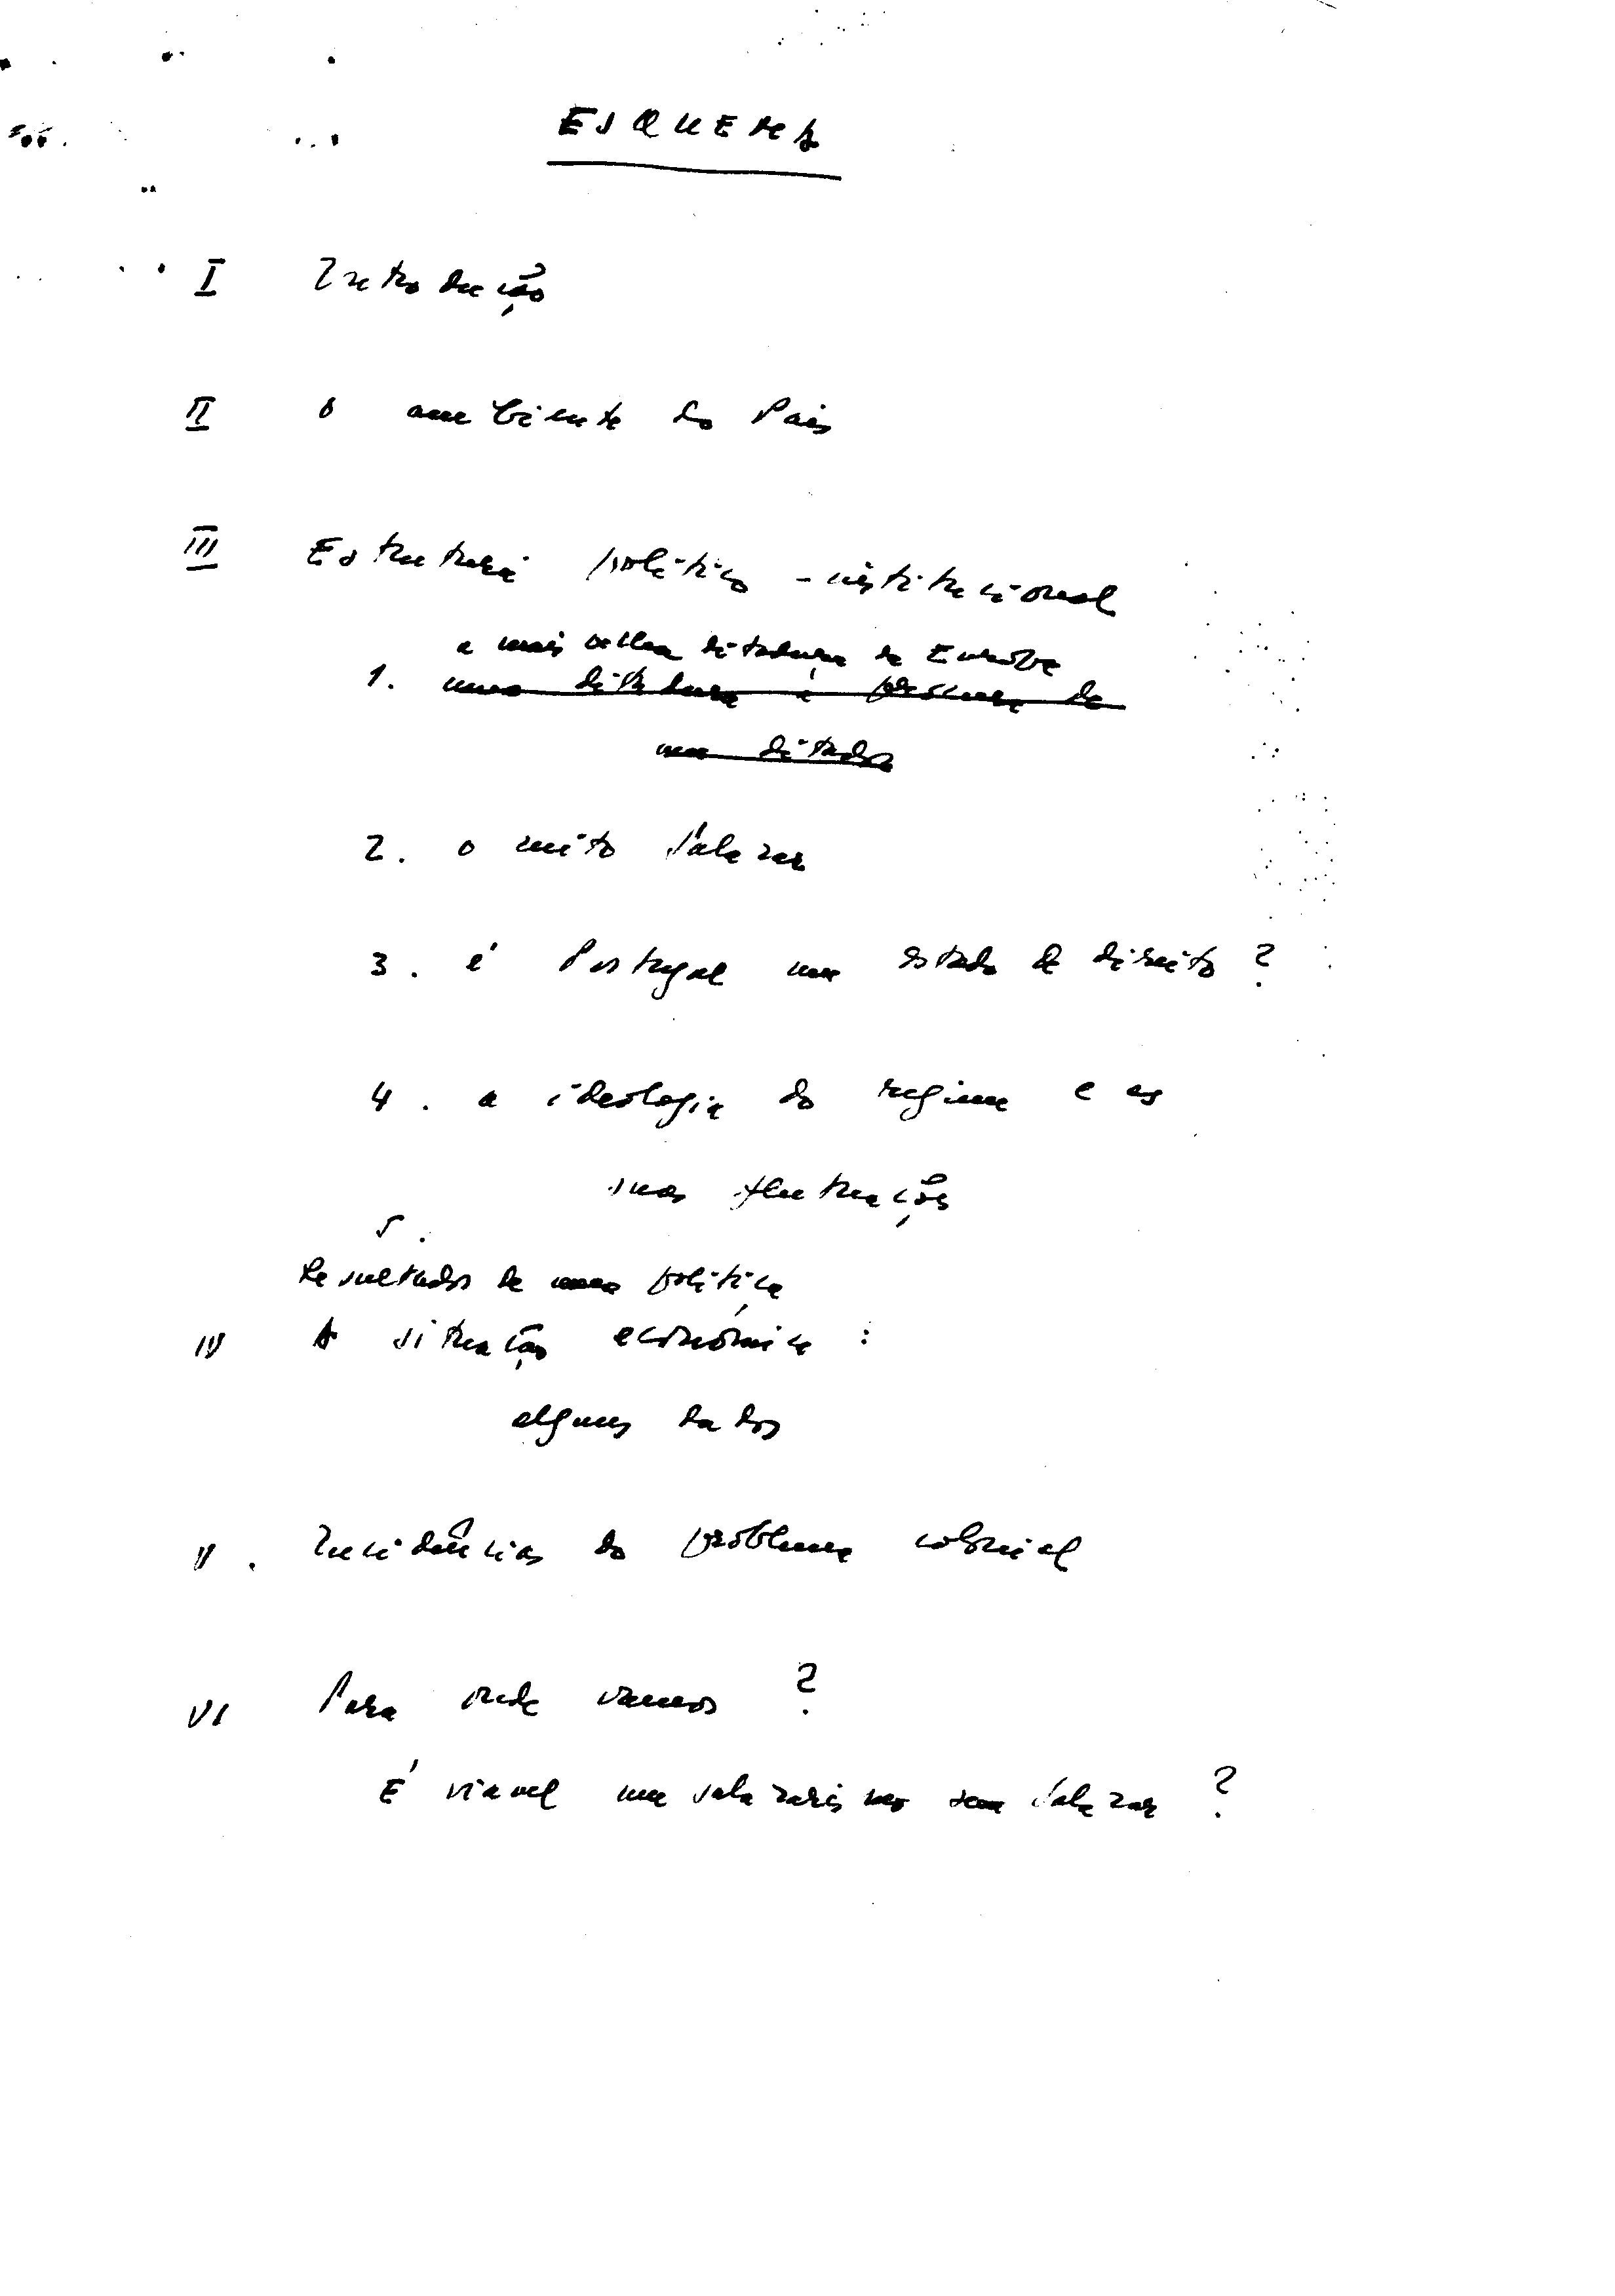 ESQUEMA
I Introdução
II O ambiente do País
III Estrutura político-institucional
a mais velha ditadura da Europa
1. uma ditadura à procura de
um ditador
2. o mito Salazar
3. é Portugal um estado de direito?
4. a ideologia do regime e as
suas flutuações
5.
Resultados de uma política
IV A situação económica:
alguns dados
V. Incidências do problema colonial
VI Para onde vamos?
É viavel um salazarismo sem Salazar?